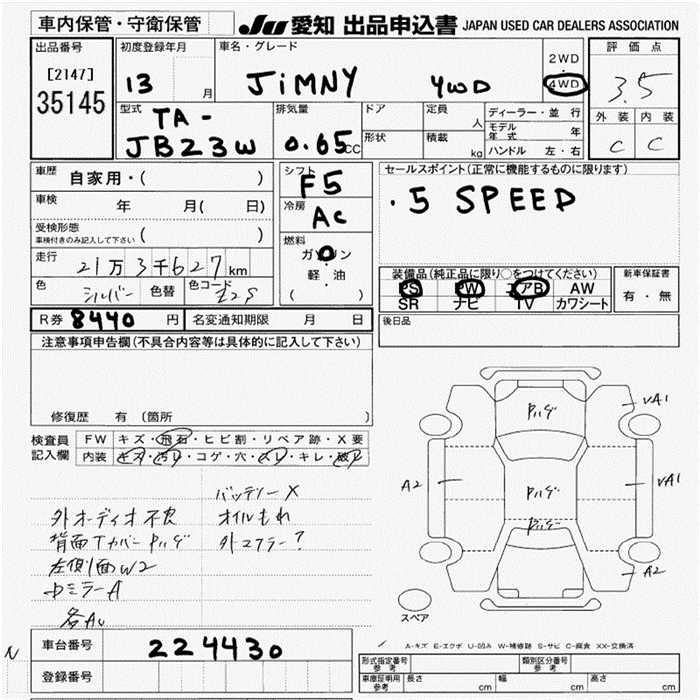 車内保管・守衛保管
JU 愛知 出品申込書 JAPAN USED CAR DEALERS ASSOCIATION
出品番号 初度登録年月 車名・グレード 評価点
[2147] 2WD
35145 13 月 JiMNY 4WD ・ 4WD 3.5
型式 排気量 ドア 定員 人 ディーラー・並行 外装 内装
TA- モデル年式 年
JB23W 0.65 CC 形状 積載 kg ハンドル 左・右 C C
車歴 自家用・( ) シフト F5 セールスポイント(正常に機能するものに限ります)
車検 年 月( 日) 冷房 AC ・5 SPEED
受検形態 ( )
車検付きのみ記入して下さい
燃料 ガソリン
走行 21万3千627km 軽・油
装備品(純正品に限り○をつけてください) 新車保証書
色 シルバー 色替 色コード Z2S ( )
PS PW エアB AW 有・無
SR ナビ TV カワシート
R券 8440 円 名変通知期限 月 日
後日品
注意事項申告欄(不具合内容等は具体的に記入して下さい)
修復歴 有(箇所
検査員 FW キズ・飛石・ヒビ割・リペア跡・X要
記入欄 内装 キズ・汚レ・コゲ・穴・スレ・キレ・破レ
バッテリーX
外オーディオ不良 オイルもれ
背面Tカバーハゲ 外マフラー?
左側面W2
中ミラーA
各AU
ハゲ
A1
A2
ハゲ
A1
A2
スペア
N
車台番号 224430
A-キズ E-エクボ U-凹み W-補修跡 S-サビ C-腐食 XX-交換済
形式指定番号 参考 類別区分番号 参考
登録番号 車庫証明用 参考 長さ cm 幅 cm 高さ cm